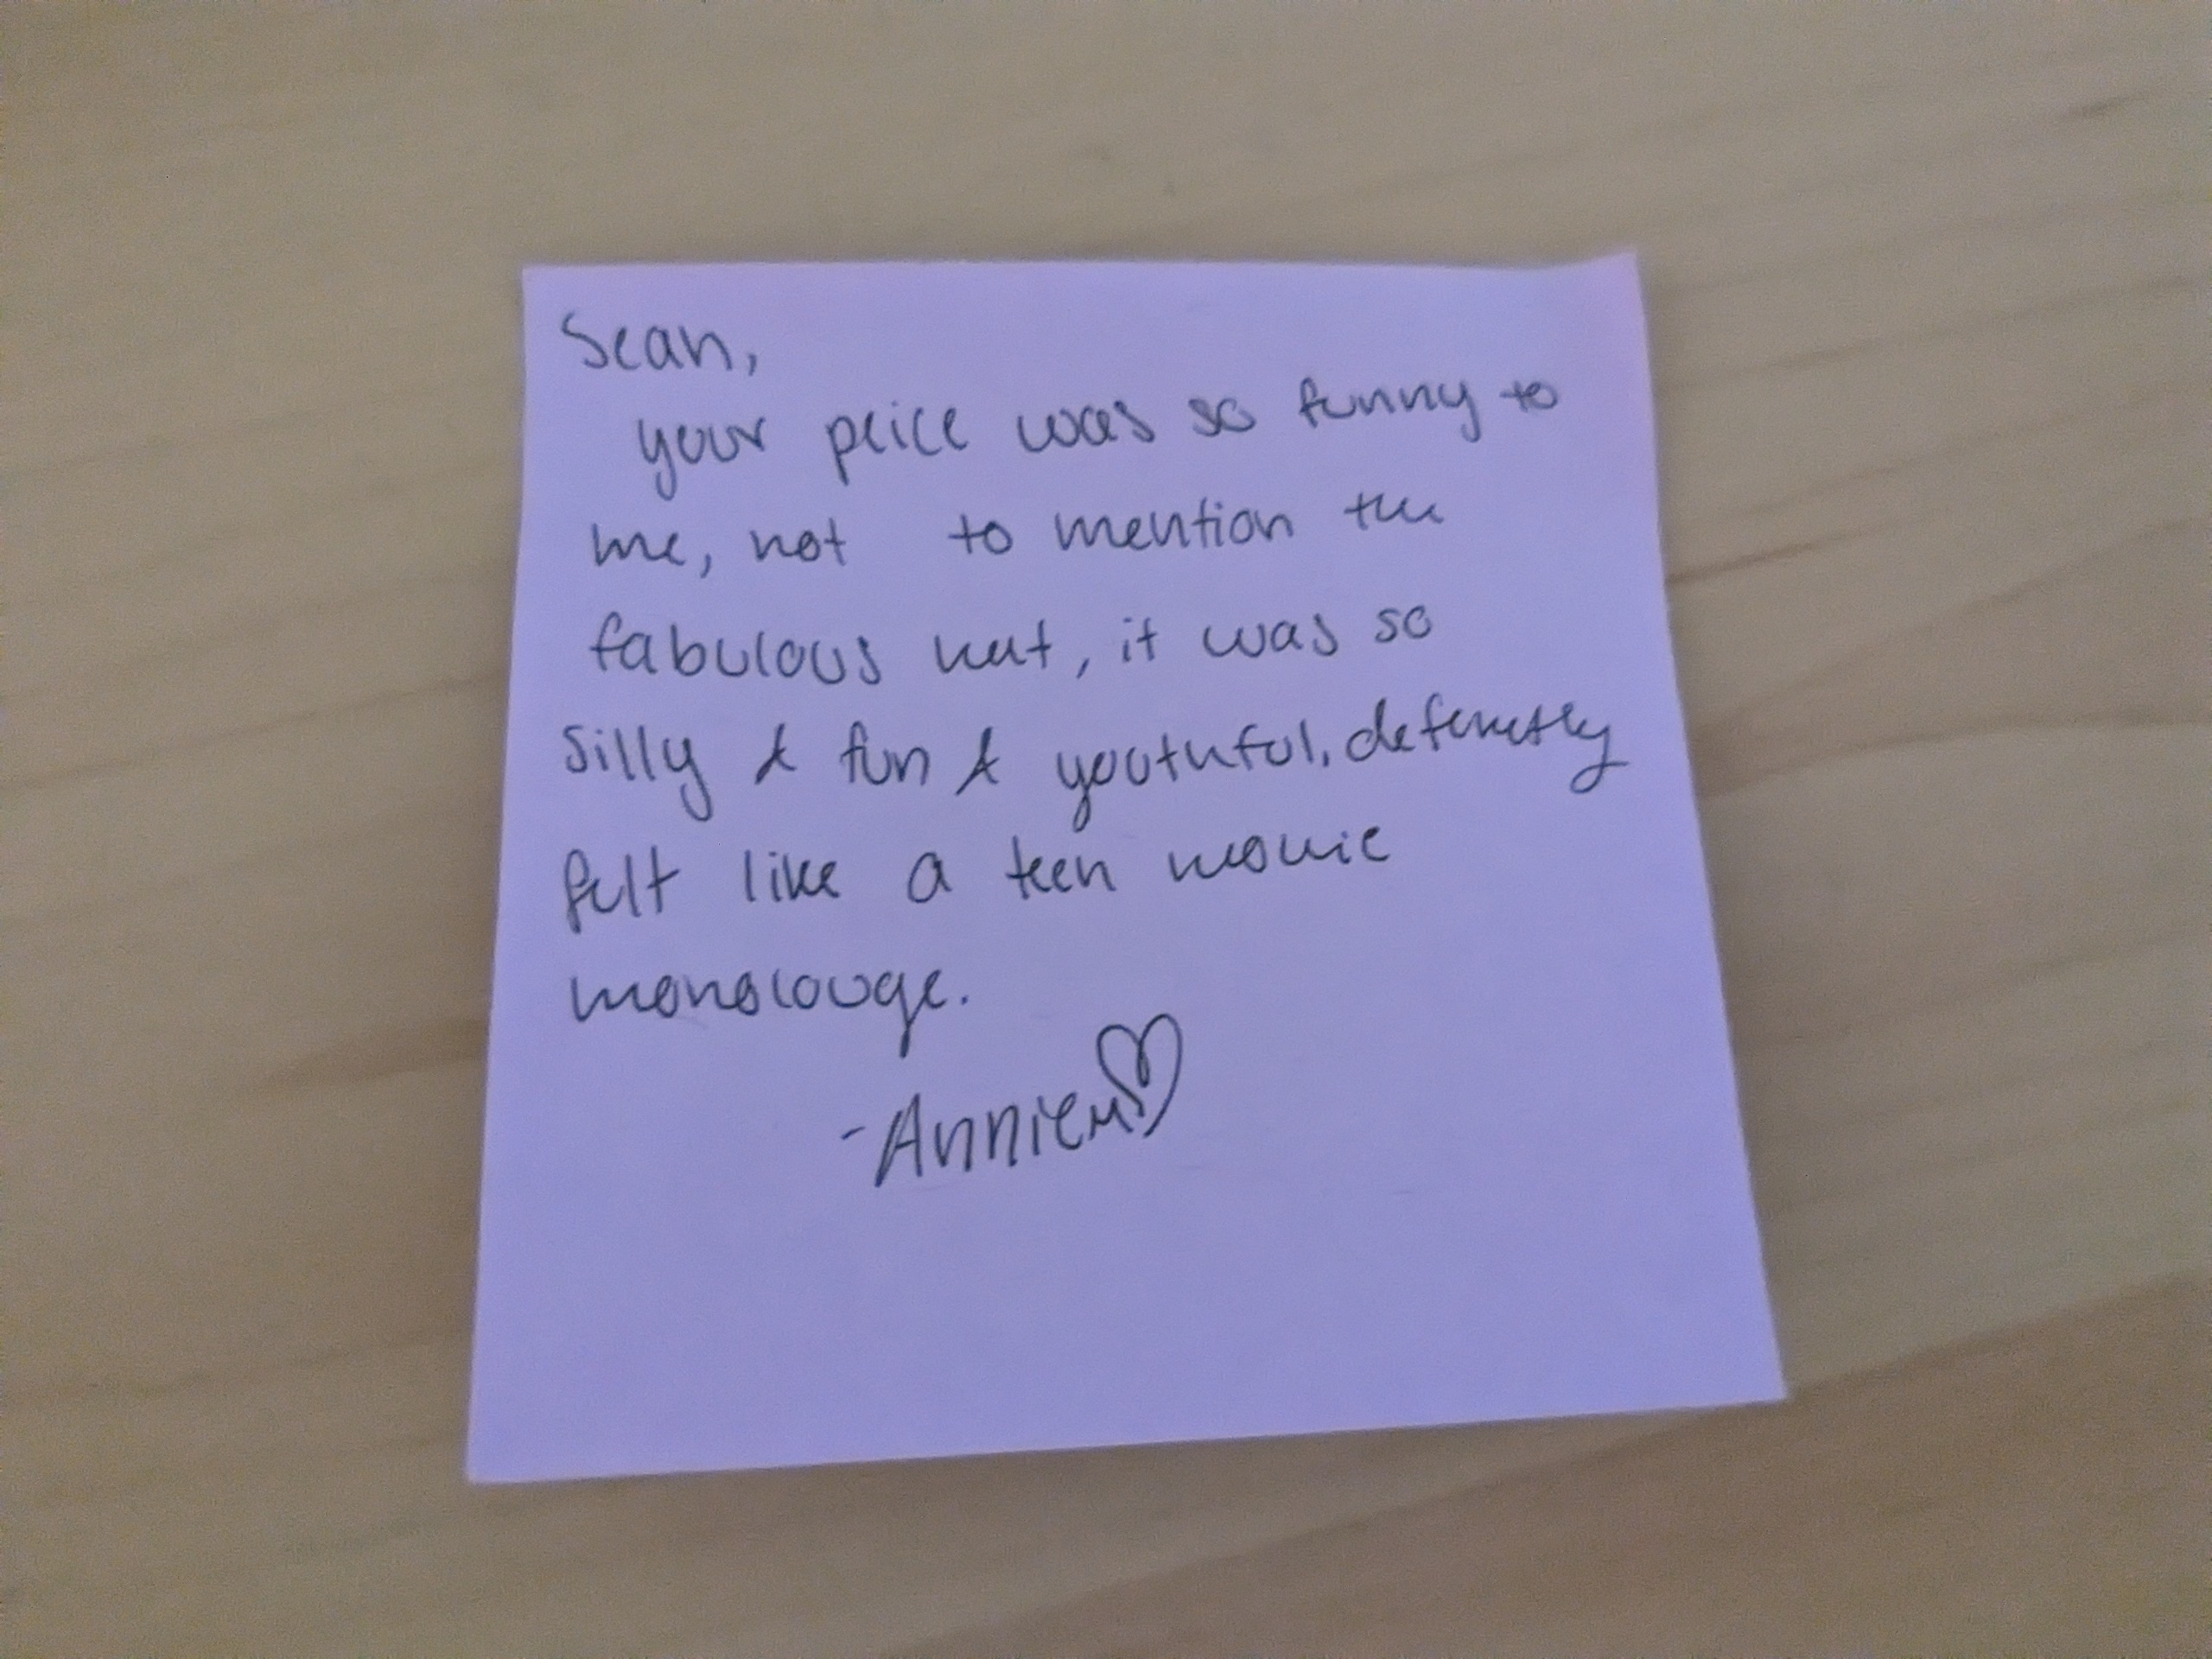 Sean,
your peice was so funny to
me, not to mention the
fabulous hat, it was so
silly & fun & youthful, definetly
felt like a teen movie
monolouge.
-Annie M